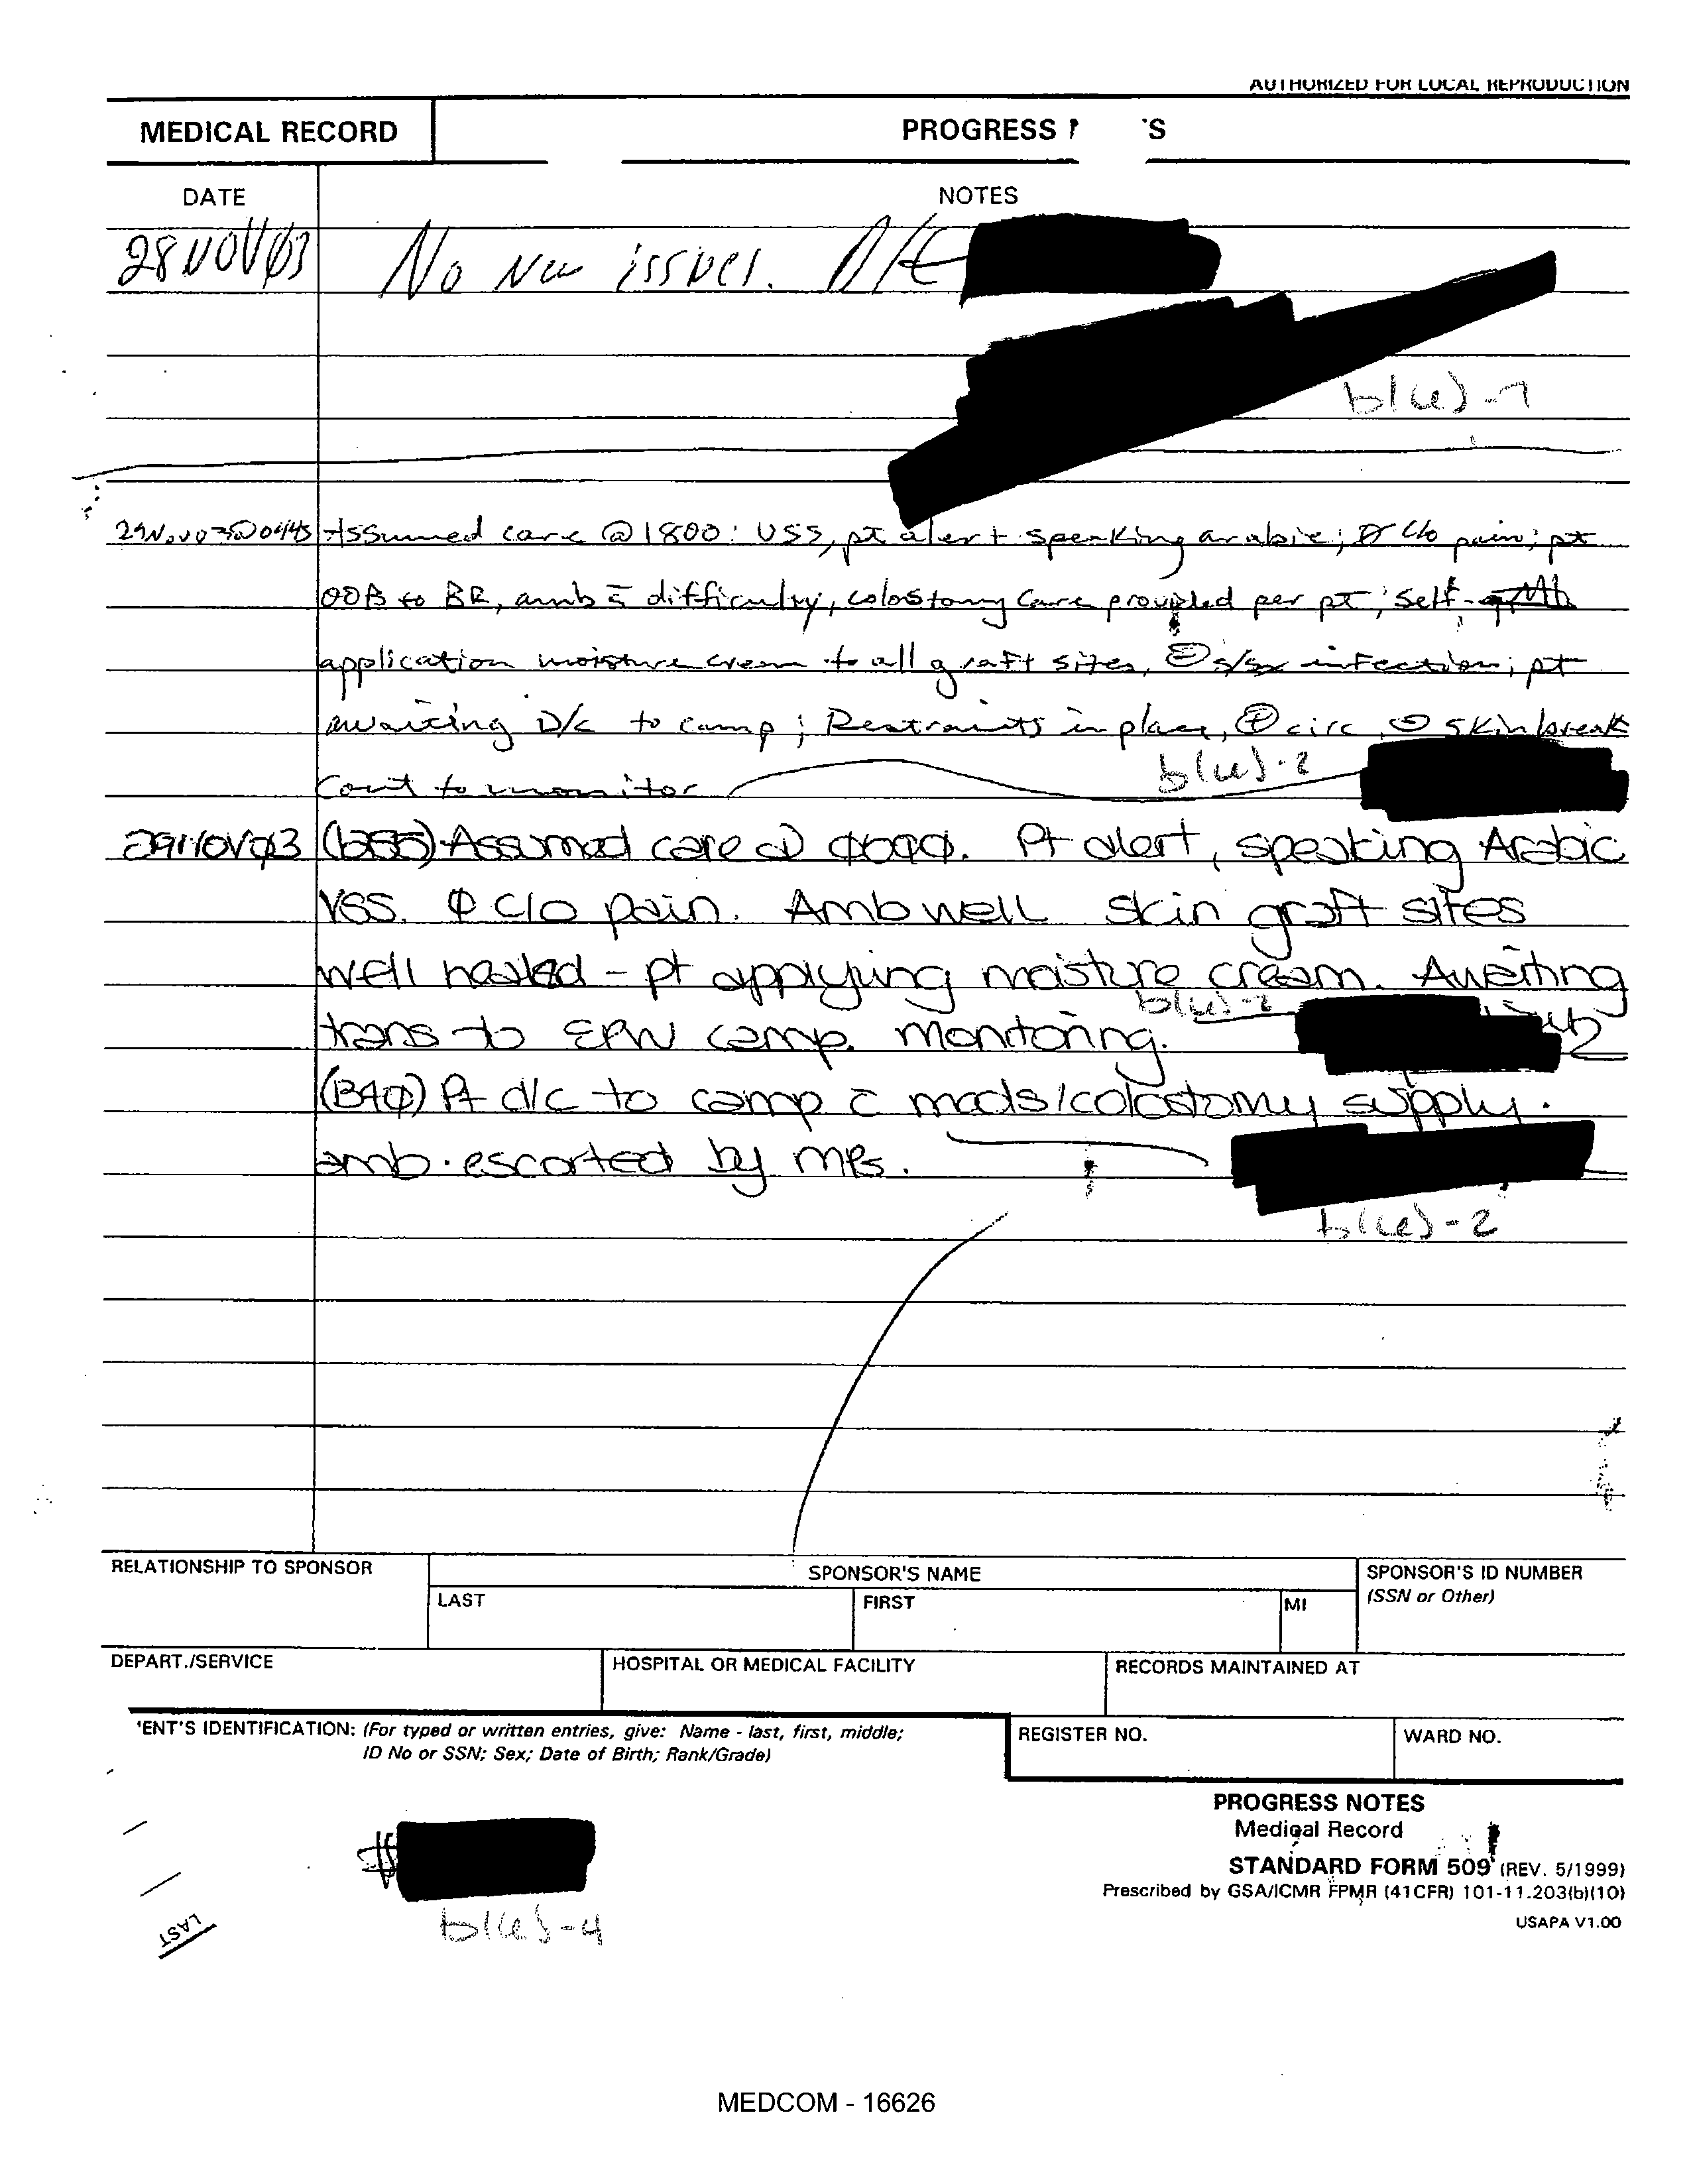 AUTHORIZED FOR LOCAL REPRODUCTION
MEDICAL RECORD
PROGRESS 'S
DATE
NOTES
28NOV03 No New issues. D/C
b(6)-1
29Nov03@0445 Assumed care @1800: VSS, pt alert speaking arabic; Ø c/o pain; pt
OOB to BR, amb s̄ difficulty, colostomy care provided per pt; self-
application moisture cream to all graft sites, ⊖ s/sx infection; pt
awaiting D/c to camp; Restraints in place, ⊕ circ, ⊖ skin break
Cont to monitor
b(6)-2
29NOV03 (1255) Assumed care @ 0600. Pt alert, speaking Arabic
VSS. Ø c/o pain. Amb well skin graft sites
well healed - pt applying moisture cream. Awaiting
b(6)-2
trans to EPW camp. monitoring.
(1340) Pt d/c to camp c̄ meds/colostomy supply.
amb. escorted by MPs.
b(6)-2
RELATIONSHIP TO SPONSOR
SPONSOR'S NAME
SPONSOR'S ID NUMBER
(SSN or Other)
LAST
FIRST
MI
DEPART./SERVICE
HOSPITAL OR MEDICAL FACILITY
RECORDS MAINTAINED AT
'ENT'S IDENTIFICATION: (For typed or written entries, give: Name - last, first, middle;
ID No or SSN; Sex; Date of Birth; Rank/Grade)
REGISTER NO.
WARD NO.
PROGRESS NOTES
Medical Record
STANDARD FORM 509 (REV. 5/1999)
Prescribed by GSA/ICMR FPMR (41CFR) 101-11.203(b)(10)
USAPA V1.00
#
b(6)-4
LAST
MEDCOM - 16626